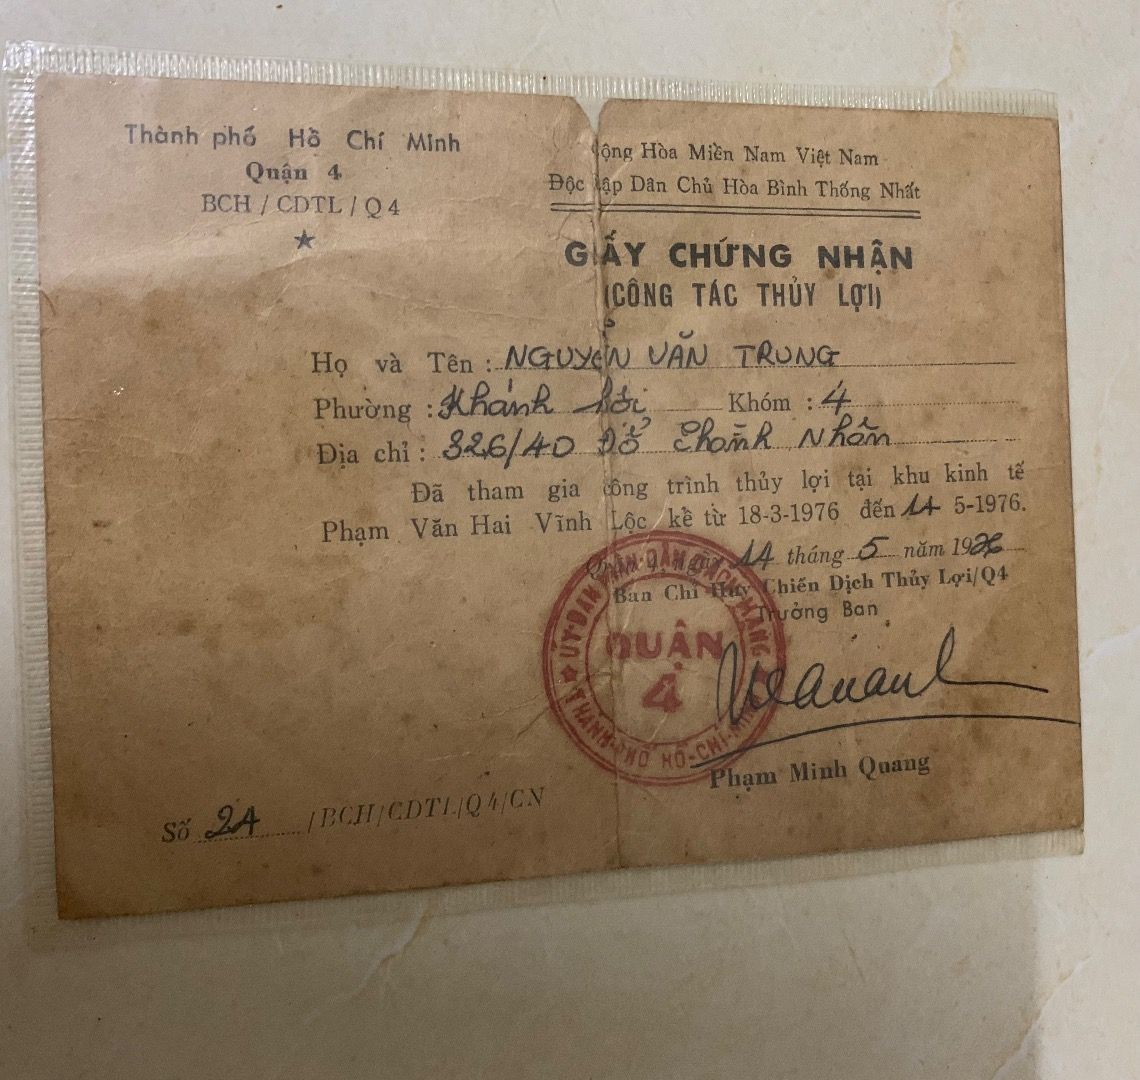 Thành phố Hồ Chí Minh
Quận 4
BCH / CDTL / Q4
ộng Hòa Miền Nam Việt Nam
Độc lập Dân Chủ Hòa Bình Thống Nhất
GIẤY CHỨNG NHẬN
(CÔNG TÁC THỦY LỢI)
Họ và Tên : NGUYỄN VĂN TRUNG
Phường : Khánh hội Khóm : 4
Địa chỉ : 326/40 Đỗ Thành Nhân
Đã tham gia công trình thủy lợi tại khu kinh tế
Phạm Văn Hai Vĩnh Lộc kề từ 18-3-1976 đến 14 5-1976.
Quận 4, ngày 14 tháng 5 năm 1976
Ban Chỉ Huy Chiến Dịch Thủy Lợi/Q4
Trưởng Ban
ỦY·BAN NHÂN·DÂN CÁCH·MẠNG
QUẬN
4
THÀNH-PHỐ HỒ-CHÍ-MINH
Phạm Minh Quang
Số 21 /BCH/CDTL/Q4/CN